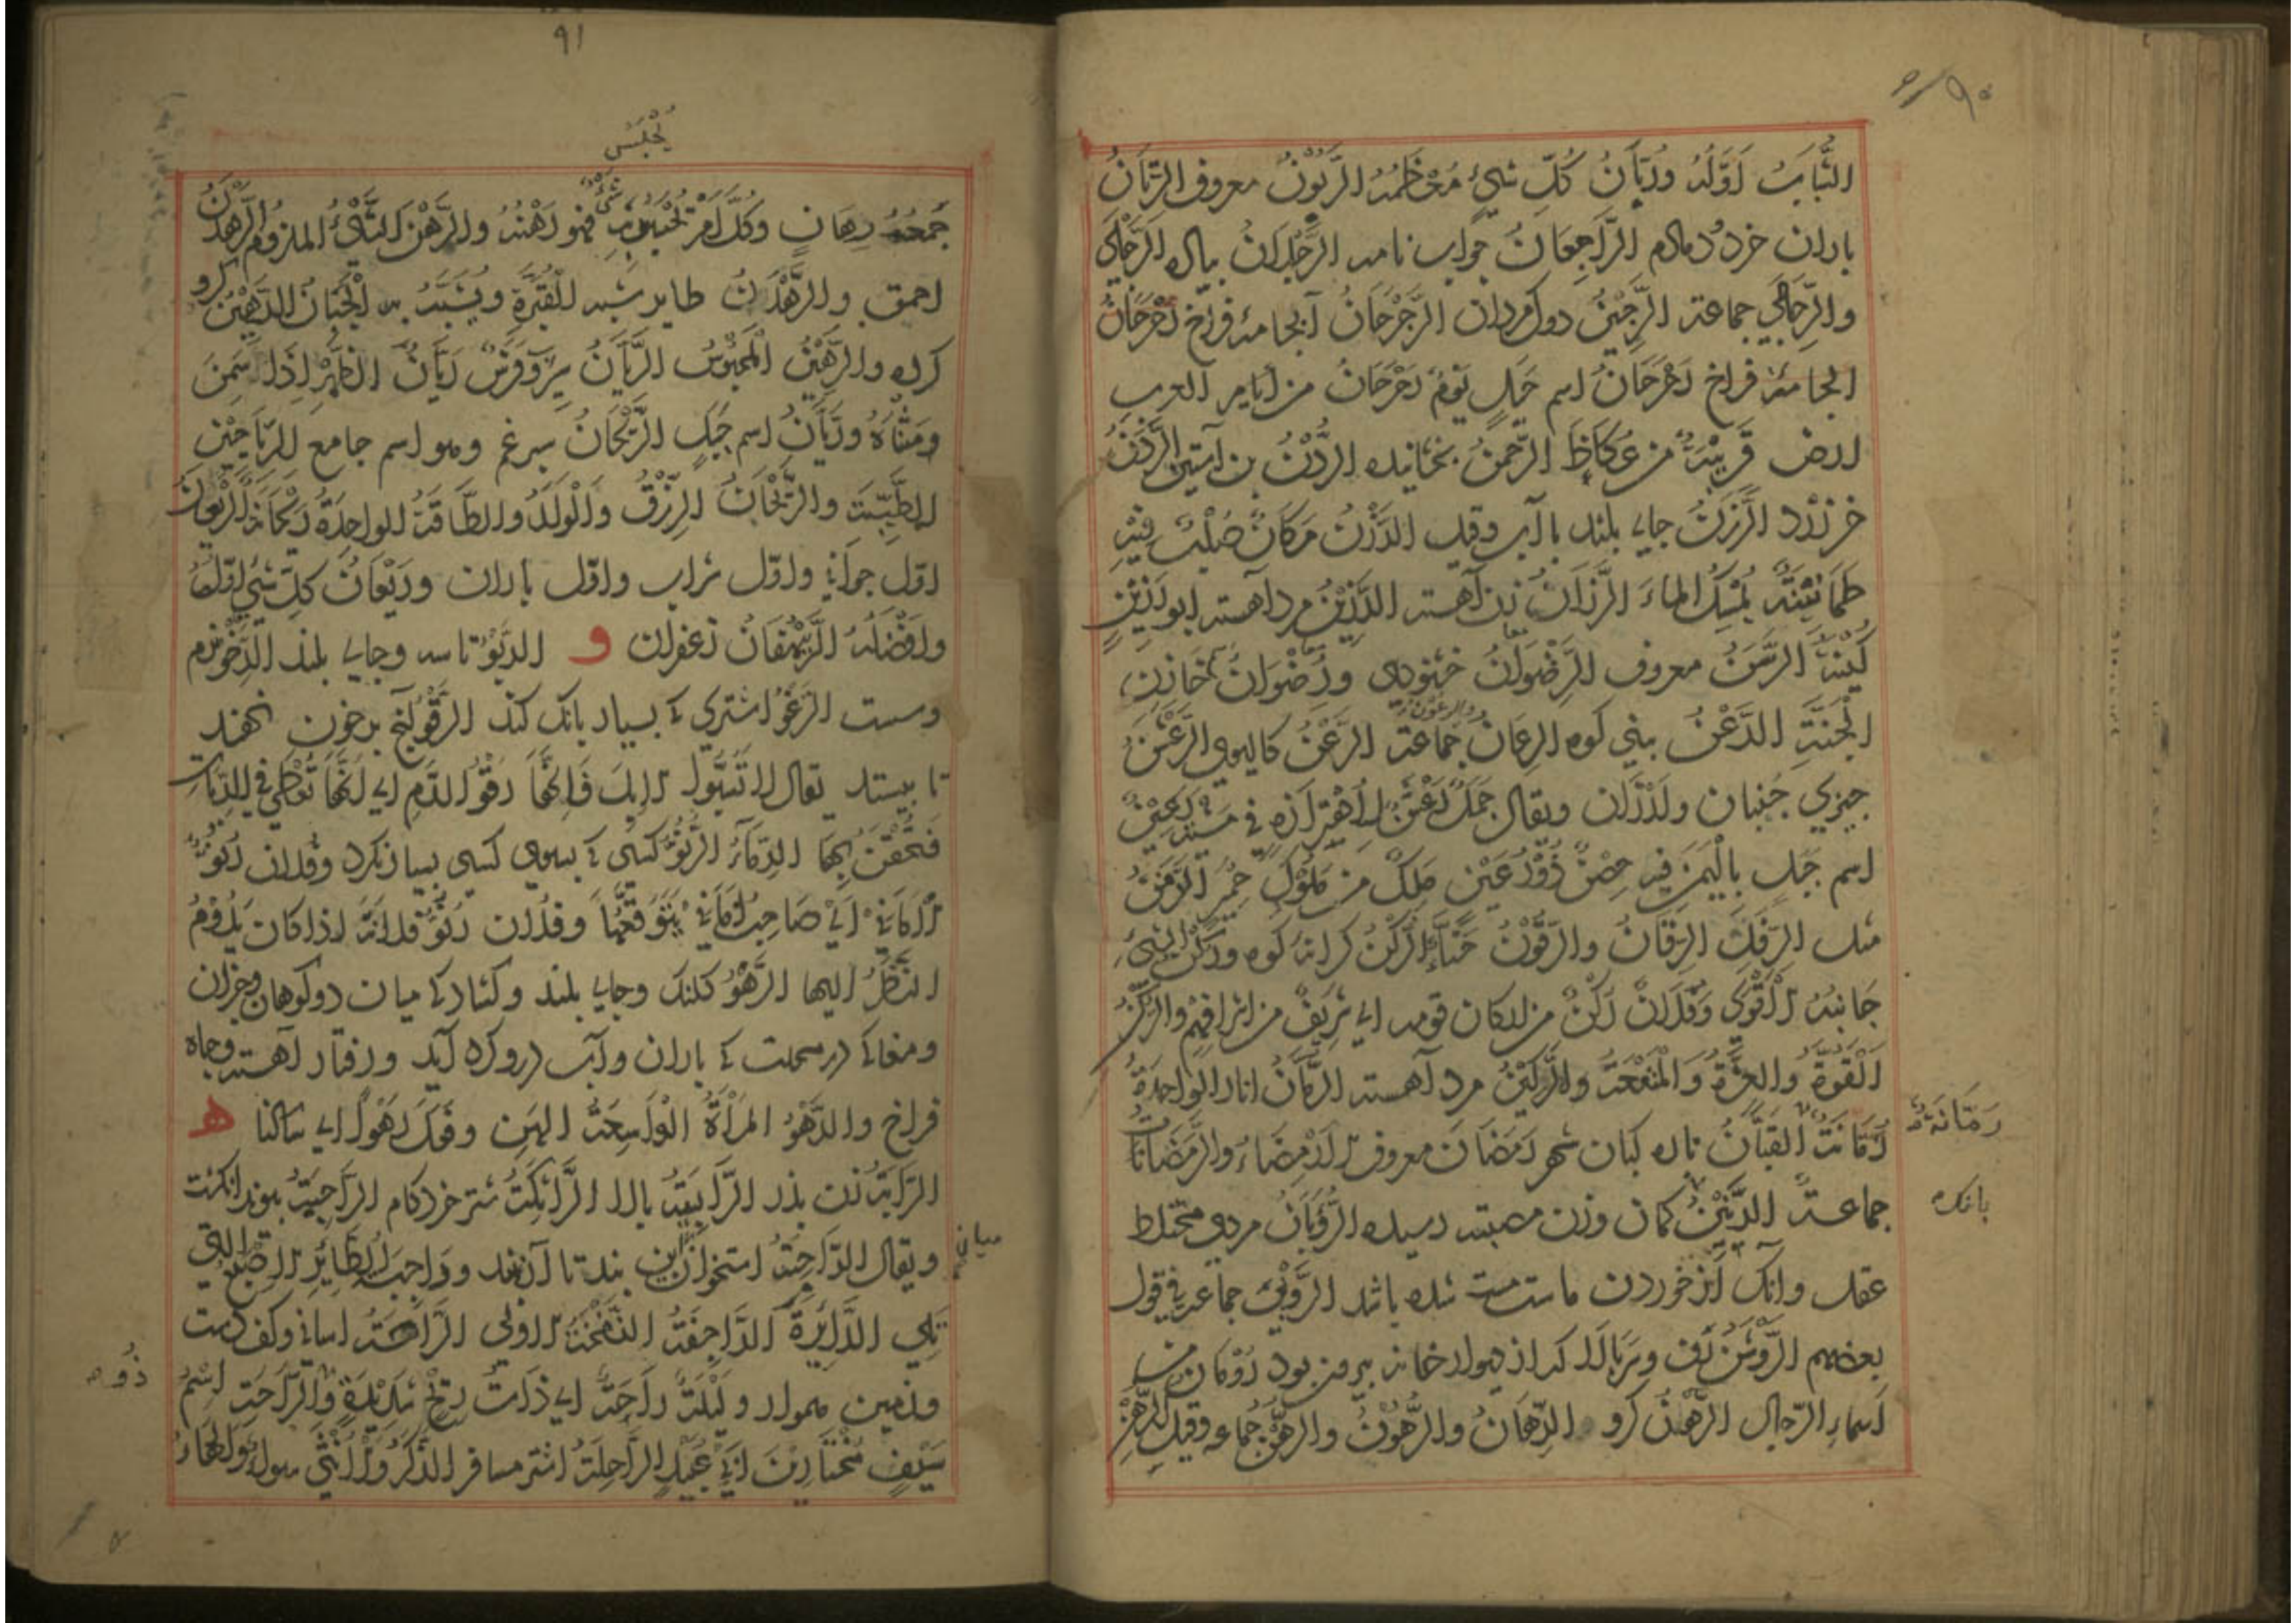 ۹۰
الشَّبَابِ اَوَّلُهُ وَرُبَّانُ كُلِّ شَيْءٍ مُعْظَمُهُ الرَّبُوْنُ معروف الرَّثَانُ
باران خرد دمادم الرَّاجِعَانُ جواب نامه الرَّجْلَانُ پیاده الرَّجَالٰی
والرُّجَالٰی جماعة الرَّجِیْنُ دول مردان الرَّجْرَجَانُ آبجامهٔ فراخ رَحْرَحَانُ
الجامهٔ فراخ رَحْرَحَانُ اسم جَبَلٍ يَوْمُ رَحْرَحَانُ من ايام العرب
ارض قَرِيْبَةٌ من عُكَاظَ الرَّحْمٰنُ بخشاینده الرُّدْنُ بن آستین الرَّدَنُ
خز زرد الرَّزْنُ جای بلند با آب وقيل الرَّزْنُ مَكَانٌ صُلْبٌ فِيْهِ
طَمَانِيْنَةٌ يُمْسِكُ الماءَ الرَّزَانُ زن آهسته الرَّزِيْنُ مرد آهسته ابو رَزِيْنٍ
كُنْيَةٌ الرَّسَنُ معروف الرِّضْوَانُ خشنودی ورِضْوَانُ خَازِنُ
الْجَنَّةِ الرَّعْنُ بینی کوه الرِّعَانُ جَمَاعة الرَّعَنُ کالیوی الرَّعْشَنُ
والرعون
چیزی جنبان ولرزان ويقال جَمَلٌ رَعْشَنٌ لِاهْتِزَازِهِ فی مشیه رُعَيْنٌ
اسم جَبَلٍ بِالْيَمَنِ فيه حِصْنٌ ذُوْ رُعَيْنٍ مَلِكٌ من مُلُوْكِ حِمْيَر الرِّفَنُّ
مثل الرِّفَلِّ الرِّقَانُ والرَّقُوْنُ حَنَّاءُ الرُّكْنُ کرانهٔ کوه ورُكْنُ الشَّيْءِ
جَانِبُهُ الْاَقْوٰى وَفُلَانٌ رُكْنٌ من اركان قومه ای شَرِيْفٌ من اشرافهم والرُّكْنُ
اَلْقُوَّةُ والعِزَّةُ وَالْمَنَعَةُ والرَّكِيْنُ مرد آهسته الرُّمَّانُ انار الواحدة
رُمَّانَةٌ القبَّانُ ناره کبان شهر رَمَضَانَ معروف الْاَرْمِضَاءُ والرَّمَضَانَاتُ
رُمَّانَةٌ
جماعةٌ الرَّنِيْنُ کمان وزن مصیبت رسیده الرَّوْبَانُ مردی مختلط
بانک
عقل وانک از خوردن ماست مست شده باشد الرَّوْبٰی جماعة فی قول
بعضهم الرَّوْشَنُ رَف وسَربالا که از دیوار خانه بیرون بود رُوْمَان من
اَسماءِ الرِّجال الرَّهْنُ گرو الرِّهَانُ والرُّهُوْنُ والرُّهُنُ جماعه وقيل الرُّهُنُ
۹۱
يُحْبَسُ
جَمعُهُ رِهَانٍ وكُلُّ اَمْرٍ يُحْتَبَسُ به شَيْءٌ فهو رَهْنُهُ والرَّهْنُ الشَّيْءُ الملزوم الرَّهْدَنُ
احمق والرَّهْدَنُ طاير شبه القُبَّرَة ويُشَبَّهُ به الْجَبَانُ الرَّهِيْنُ گرو
کرده والرَّهِيْنُ الْمَحْبُوْسُ الرَّيَّانُ سیرآب وفَرَسٌ رَيَّانُ الظَّهْرِ اِذَا سَمِنَ
ومَتْنَاهُ ورَيَّانُ اسم جَبَلٍ الرَّيْحَانُ سپرغم وهو اسم جامع للرَّيَاحِيْنِ
الطَّيِّبَةِ والرَّيْحَانُ الرِّزْقُ وَالْوَلَدُ والطَّاقَةُ الواحدةُ رَيْحَانَةٌ الرَّيْعَانُ
اول جوانی واول شراب واول باران ورَيْعَانُ كلِّ شَيْءٍ اَوَّلُهُ
وافْضَلُهُ الرَّيْهُقَانُ زعفران و الرَّبْوُ تاسه وجای بلند الرِّخْوُ نرم
وسست الرَّغُوْ اشتری که بسیار بانک کند الرَّقُوْءُ انچ بر خون نهند
تا بیستد يقال لا تَسُبُّوا الابل فَاِنَّهَا رَقُوْءُ الدَّمِ ای انها تُعْطٰی فی الدِّيَاتِ
فَتُحْقَنُ بِهَا الدِّمَاءُ الرَّنُوُّ کسی که بسوی کسی بسیار نکرد وفلان رَنُوُّ
الْاَمَانِي اَيْ صَاحِبُ اَمَانِي يَتَوَقَّعُهَا وفُلان رَنُوُّ فُلَانَةٍ اذا کان يُدِيْمُ
النَّظَرَ اليها الرَّهْوُ کلنک وجای بلند وکشادکی میان دو کوهان وخزان
ومغاکی در محلت که باران وآب درو کرد آید ورفتار آهسته وجاه
فراخ والرَّهْوُ المَرْاَةُ الْوَاسِعَةُ الْهَنِ وفَعَلَ رَهْوًا ای ساکنا ه
الرَّابَّةُ زن پدر الرَّابِيَةُ بالا الرَّاتِكَةُ شتر خرد کام الرَّاجِبَةُ پیوند انکشت
ويقال الرَّاجِبَةُ استخوان این بند تا آن بند ورَاجِبَةُ الطَّائِرِ الاصبع التی
میان
تَلِي الدَّائِرَةَ الرَّاجِفَةُ النَّفْخَةُ الاولٰی الرَّاحَةُ اسانی وکف دست
وزمین هموار ولَيْلَةٌ رَاحَةٌ ای ذَاتُ رِيْحٍ شَدِيْدَةٍ والرَّاحَةُ اِسْمُ
ذُوه
سَيْفِ مُخْتَارِ بْنِ اَبِيْ عُبَيْدٍ الرَّاحِلَةُ اشتر مسافر الذَّكَرُ وَالْاُنْثٰی سواء والهاءُ